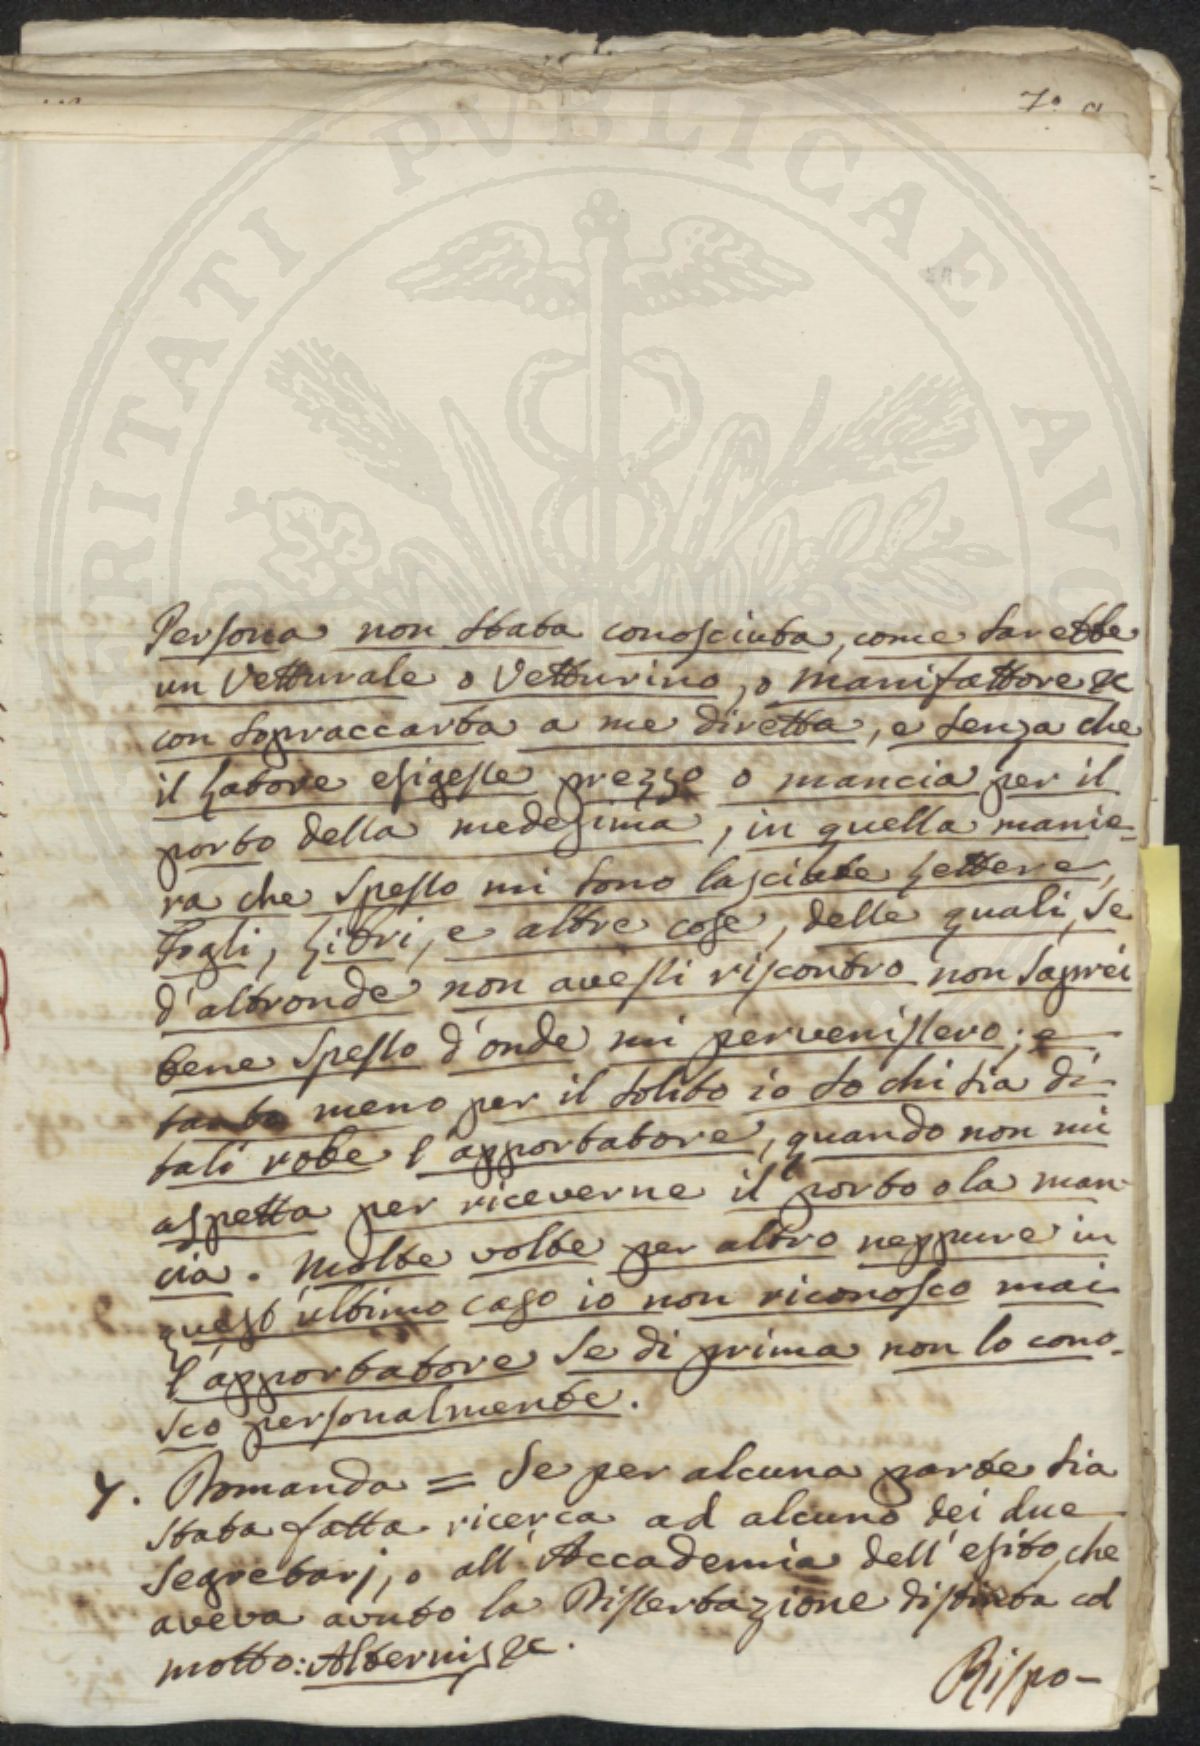 7.° a
Persona non stata conosciuta, come sarebbe
un Vetturale o Vetturino, o Manifattore &c
con sopraccarta a me diretta, e senza che
il Latore esigesse prezzo o mancia per il
porto della medesima, in quella manie=
ra che spesso mi sono lasciate Lettere,
Fogli, Libri, e altre cose, delle quali, se
d'altronde non avessi riscontro non saprei
bene spesso d'onde mi pervenissero; e
tanto meno per il solito io so chi sia di
tali robe l'apportatore, quando non mi
aspetta per riceverne il porto o la man-
cia. Molte volte per altro neppure in
quest'ultimo caso io non riconosco mai
l'apportatore se di prima non lo cono-
sco personalmente.
7. Domanda = Se per alcuna parte sia
stata fatta ricerca ad alcuno dei due
Segretarj, o all'Accademia dell'esito, che
aveva avuto la Dissertazione distinta col
motto: Alternis &c.
Rispo-
VERITATI PVBLICAE AVC